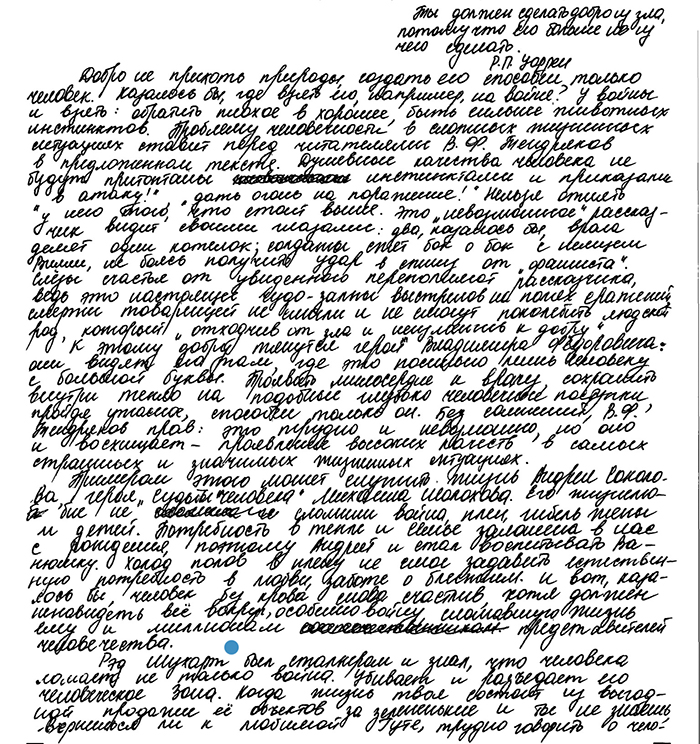 Ты должен сделать добро из зла,
потому что его больше не из
чего сделать.
Р.П. Уоррен
Добро не прихоть природы, создать его способен только
человек. Казалось бы, где взять его, например, на войне? У войны
и взять: обратить плохое в хорошее, быть сильнее животных
инстинктов. Проблему человечности в сложных жизненных
ситуациях ставит перед читателями В.Ф. Тендряков
в предложенном тексте. Душевные качества человека не
будут притоптаны инстинктами и приказами
"в атаку!" "дать огонь на поражение!" Нельзя отнять
"у него того, что стоит выше. Это "невозможное" рассказ-
чик видит своими глазами: два, казалось бы, врага
делят один котелок; солдаты спят бок о бок с немцем
Вилли, не боясь получить удар в спину от "фашиста".
Слёзы счастья от увиденного переполняют рассказчика,
ведь это настоящее чудо-залпы выстрелов на полях сражений
смерти товарищей не смогли и не смогут поколебить людской
род, который "отходчив от зла и неутомим к добру"
К этому добру тянутся герои Владимира Фёдоровича:
они видят его там, где это посильно лишь Человеку
с большой буквы. Проявить милосердие к врагу, сохранить
внутри тепло на подобные глубоко человечные поступки
пройдя ужасное, способен только он. Без сомнения, В.Ф.
Тендряков прав: это трудно и невозможно, но оно
и восхищает - проявление высоких качеств в самых
страшных и значимых жизненных ситуациях.
Примером этого может служить жизнь Андрея Соколо-
ва героя "Судьбы человека" Михаила Шолохова. Его жизнелю-
бие не сломили война, плен, гибель жены
и детей. Потребность о тепле и семье заложена в нас
с рождения, поэтому Андрей и стал воспитывать Ва-
нюшку. Холод полов в плену не смог задавить естествен-
ную потребность в любви, заботе о ближнем. и вот, каза-
лось бы, человек без крова снова счастлив хотя должен
ненавидеть всё вокруг, особенно войну сломавшую жизнь
ему и миллионам представителей
человечества.
Рэд Шухарт был сталкером и знал, что человека
ломает не только война. Убивает и разъедает его
человеческое Зона. Когда жизнь твоя состоит из выгод-
ной продажи её объектов за зелененькие и ты не знаешь
вернешься ли к любимой Гуте, трудно говорить о чело-